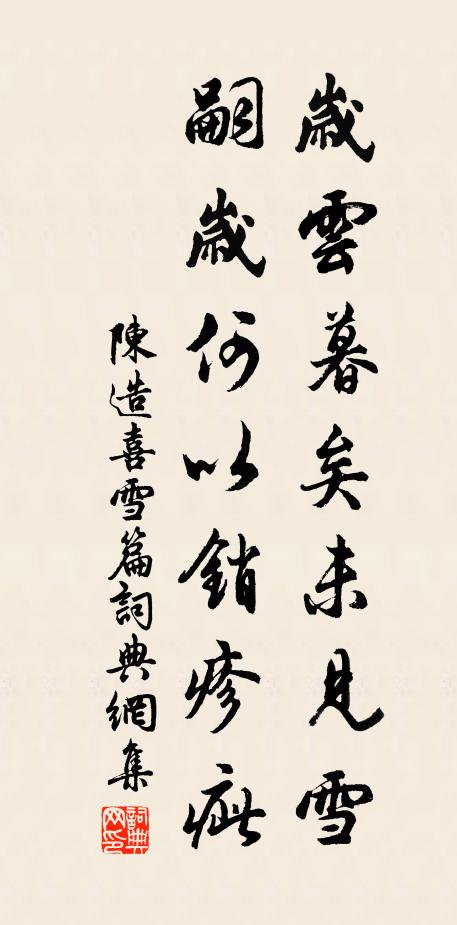 歲雲暮矣未見雪
嗣歲何以銷疹疵
陳造喜雪篇詞典網集
詞典網印